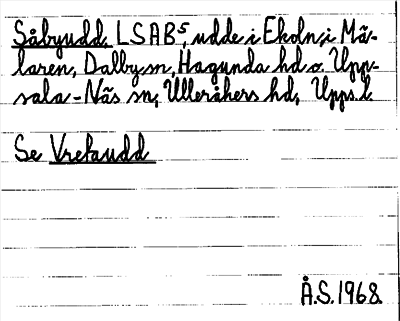 Såbyudd, LSAB⁵, udde i Ekoln, i Mä-
laren, Dalby sn, Hagunda hd o. Upp-
sala-Näs sn, Ulleråkers hd, Upps.l.
Se Vretaudd
Å.S. 1968